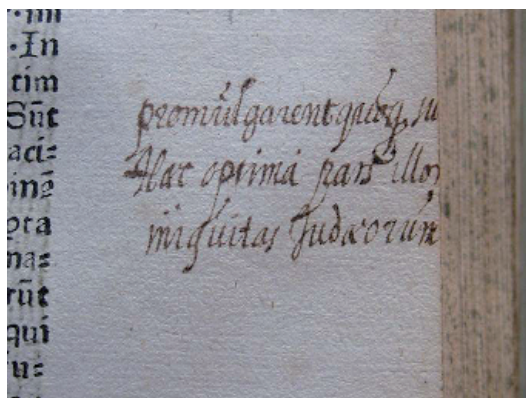 ·In
tim
Sūt
aci=
pta
na=
rūt
qui
u=
promulgarent quoq
Hac optima pars illor
iniquitas Judæorum